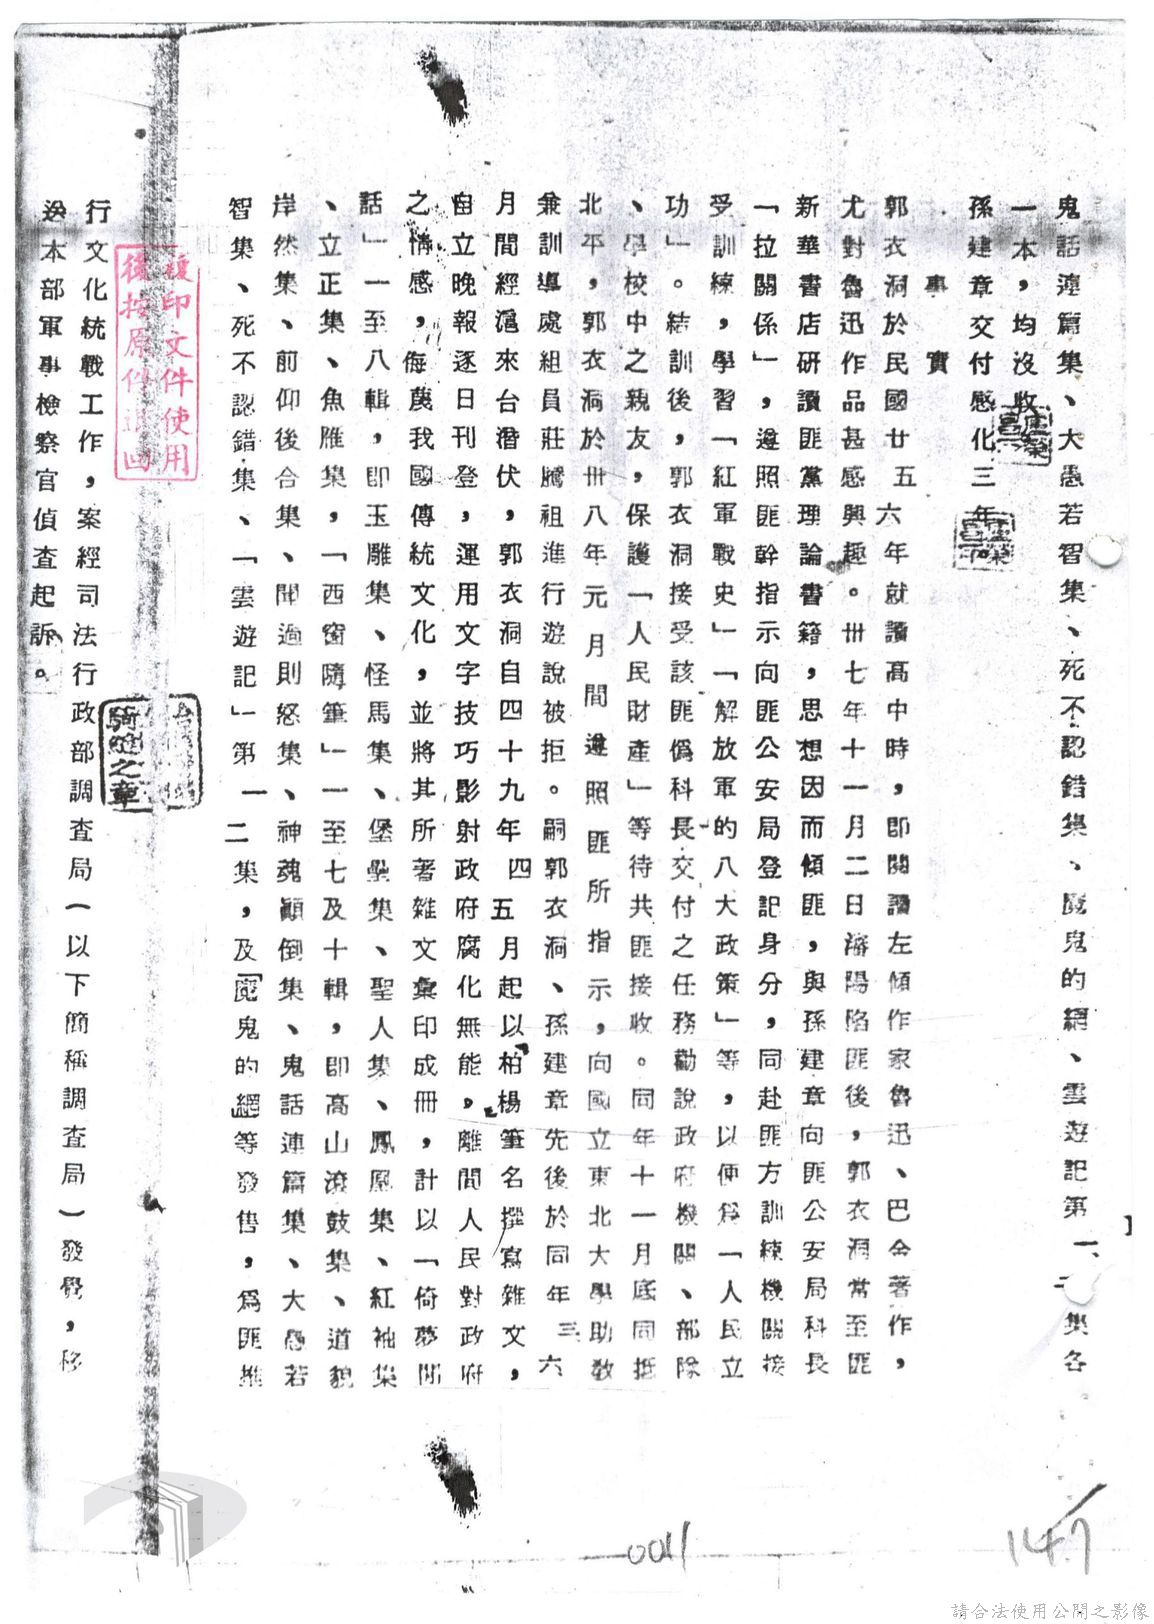 鬼話連篇集、大愚若智集、死不認錯集、魔鬼的網、雲遊記第一、二集各
一本，均沒收。
孫建章交付感化三年。
事實
郭衣洞於民國廿五六年就讀高中時，即閱讀左傾作家魯迅、巴金著作，
尤對魯迅作品甚感興趣。卅七年十一月二日瀋陽陷匪後，郭衣洞常至匪
新華書店研讀匪黨理論書籍，思想因而傾匪，與孫建章向匪公安局科長
「拉關係」，遵照匪幹指示向匪公安局登記身分，同赴匪方訓練機關接
受訓練，學習「紅軍戰史」「解放軍的八大政策」等，以便為「人民立
功」。結訓後，郭衣洞接受該匪偽科長交付之任務勸說政府機關、部隊
、學校中之親友，保護「人民財產」等待共匪接收。同年十一月底同抵
北平，郭衣洞於卅八年元月間遵照匪所指示，向國立東北大學助教
兼訓導處組員莊騰祖進行遊說被拒。嗣郭衣洞、孫建章先後於同年三六
月間經滬來台潛伏，郭衣洞自四十九年四五月起以柏楊筆名撰寫雜文，
自立晚報逐日刊登，運用文字技巧影射政府腐化無能，離間人民對政府
之情感，侮蔑我國傳統文化，並將其所著雜文彙印成冊，計以「倚夢閒
話」一至八輯，即玉雕集、怪馬集、堡壘集、聖人集、鳳凰集、紅袖集
、立正集、魚雁集，「西窗隨筆」一至七及十輯，即高山滾鼓集、道貌
岸然集、前仰後合集、聞過則怒集、神魂顛倒集、鬼話連篇集、大愚若
智集、死不認錯集、「雲遊記」第一二集，及「魔鬼的網」等發售，為匪推
行文化統戰工作，案經司法行政部調查局（以下簡稱調查局）發覺，移
送本部軍事檢察官偵查起訴。
複印文件使用
後按原件退回
騎縫之章
0011
147
請合法使用公開之影像